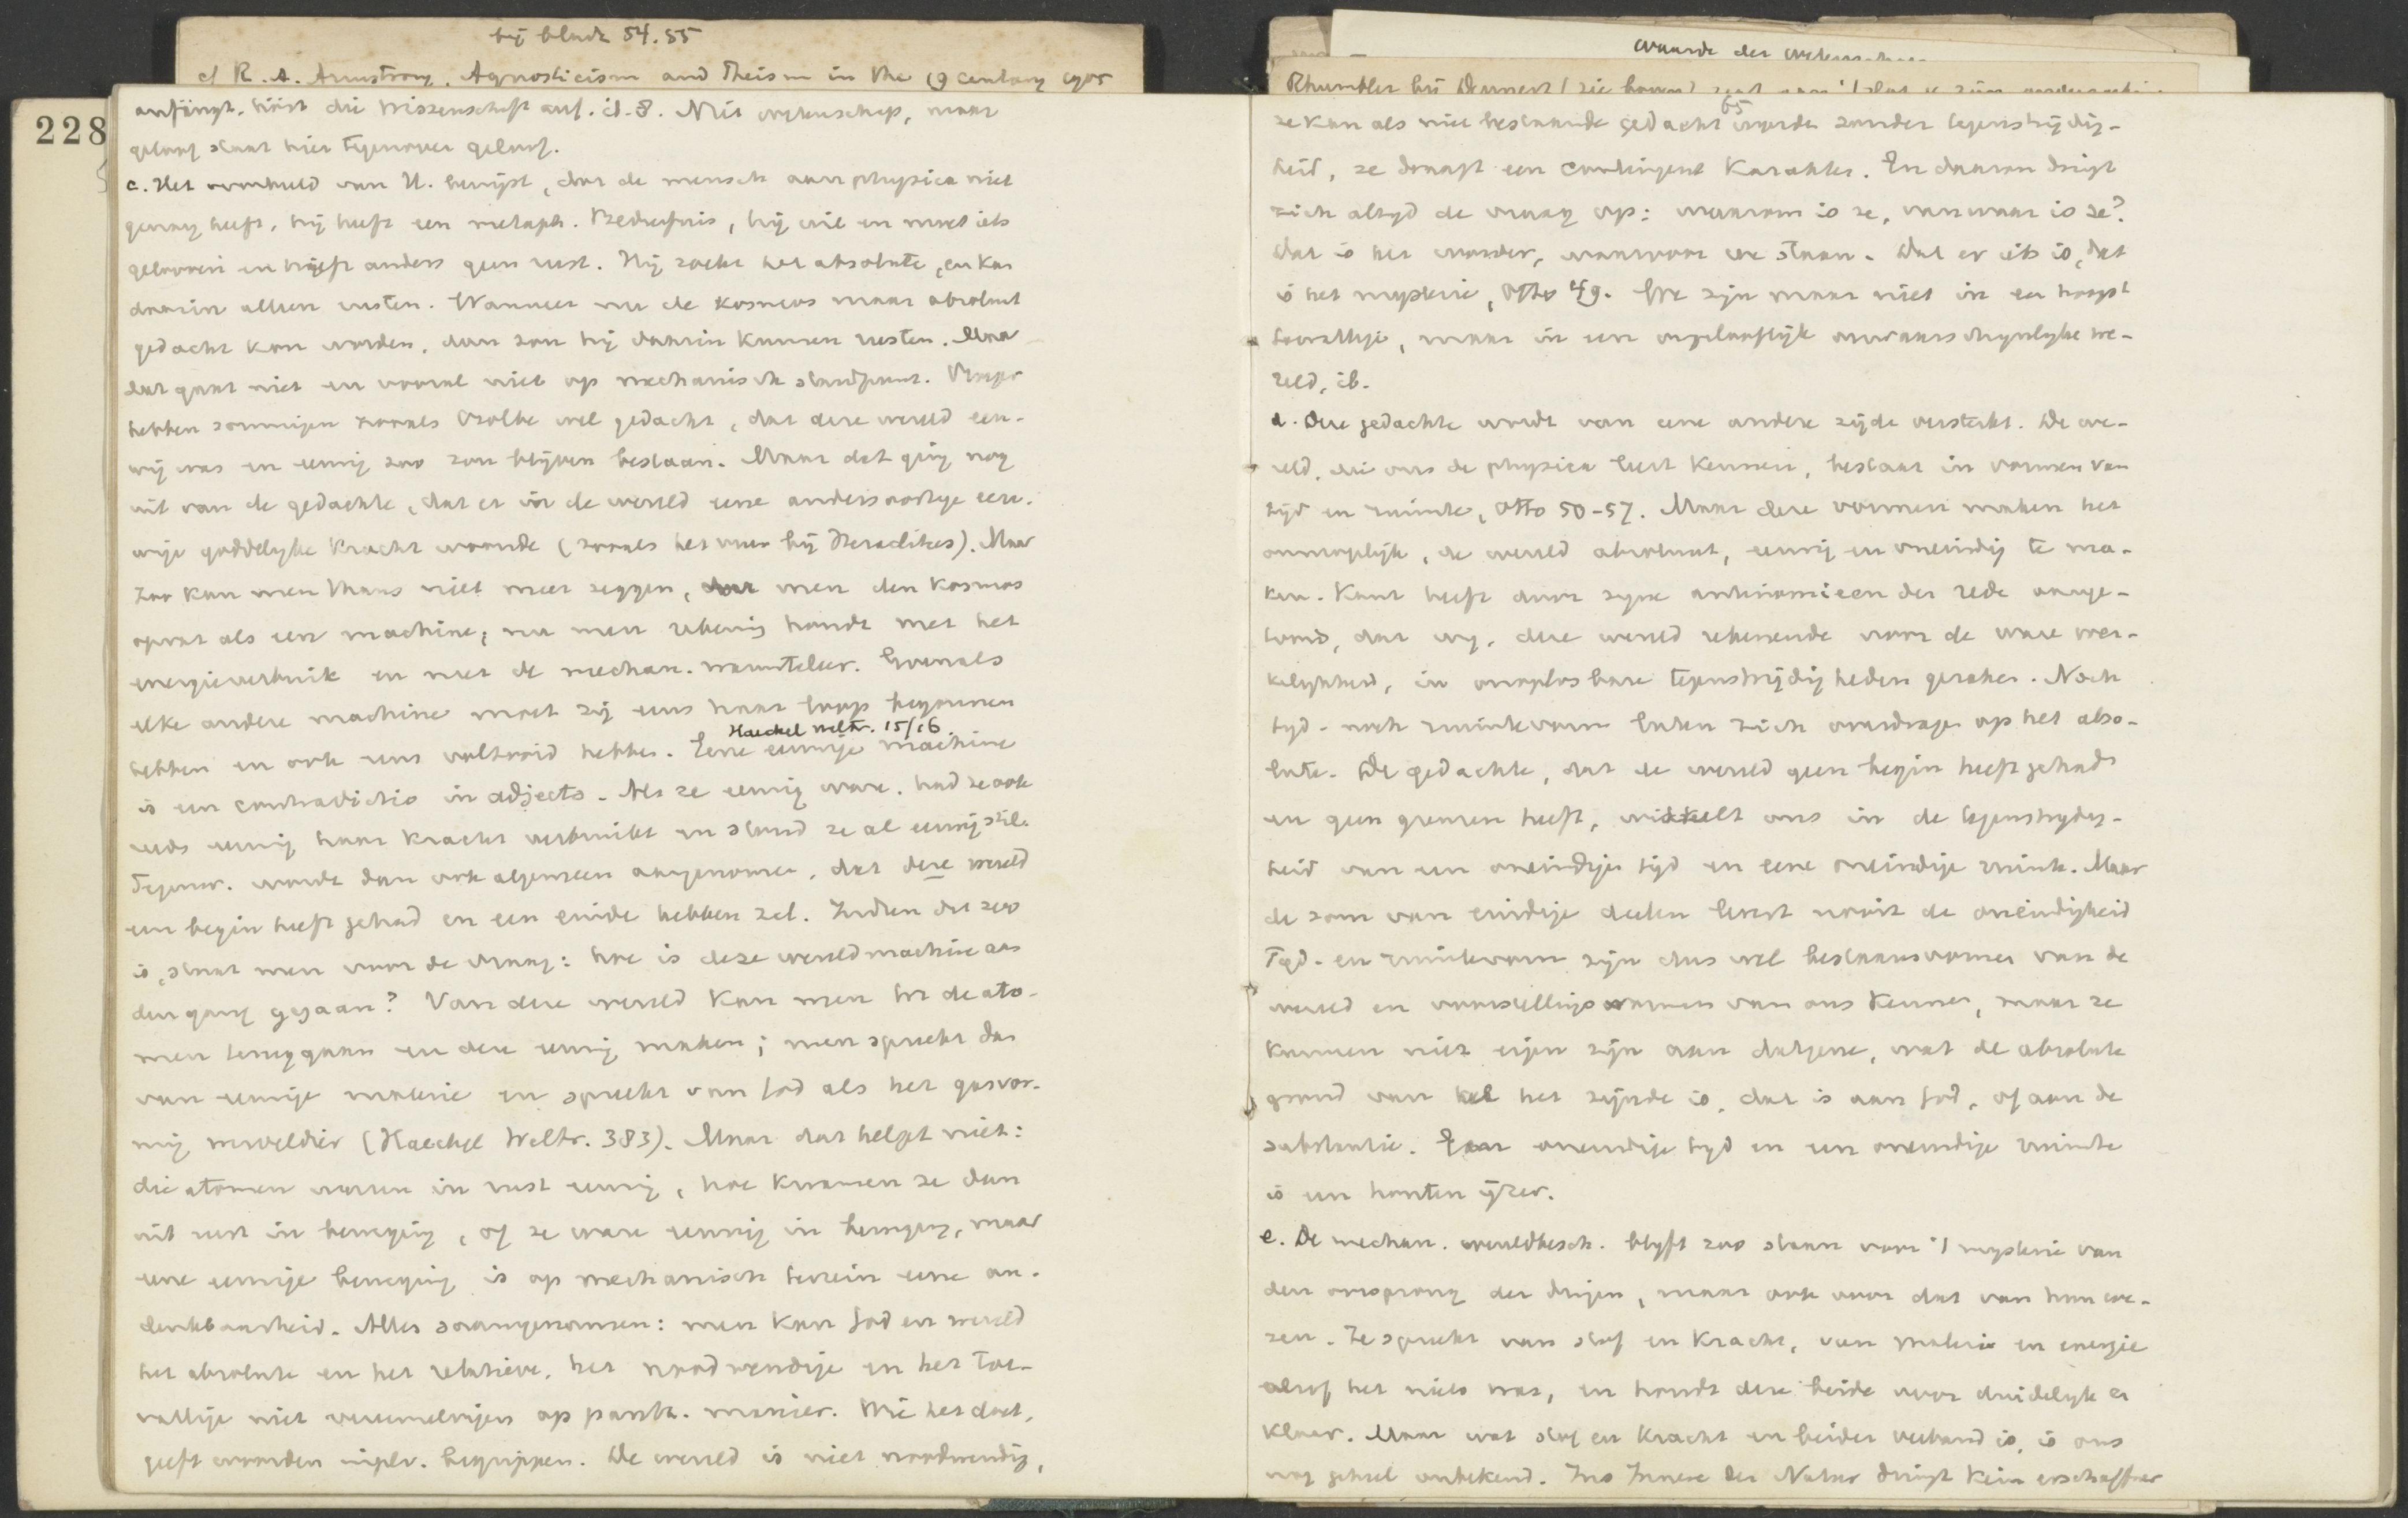 bij bladz 54.55
cf R. A. Armstrong, Agnosticism and Theism in the 19 century 1905
228
anfängt, hört die Wissenschaft auf. id. 8. Niet wetenschap, maar
geloof staat hier tegenover geloof.
c. Het voorbeeld van H. bewijst, dat de mensch aan physica niet
genoeg heeft, hij heeft een metaph. Bedürfnis, hij wil en moet iets
gelooven en heeft anders geen rust. Hij zoekt het absolute, en kan
daarin alleen rusten. Wanneer nu de kosmos maar absoluut
gedacht kon worden, dan zou hij daarin kunnen rusten. Maar
dat gaat niet en vooral niet op mechanisch standpunt. Vroeger
hebben sommigen zooals Czolbe wel gedacht, dat deze wereld eeu-
wig was en eeuwig zoo zou blijven bestaan. Maar dat ging nog
uit van de gedachte, dat er in de wereld eene andersoortige eeu-
wige goddelijke kracht woonde (zooals het vuur bij Heraclitus). Maar
zoo kan men thans niet meer zeggen, daar men den kosmos
opvat als een machine; nu men rekening houdt met het
energieverbruik en met de mechan. warmteleer. Evenals
elke andere machine moet zij eens haar loop begonnen
hebben en ook eens voltooid hebben. Eene eeuwige machine
Haeckel Weltr. 15/16
is een contradictio in adjecto. Als ze eeuwig ware, had ze ook
reeds eeuwig haar kracht verbruikt en stond ze al eeuwig stil.
Tegenw. wordt dan ook algemeen aangenomen, dat deze wereld
een begin heeft gehad en een einde hebben zal. Indien dit zoo
is, staat men voor de vraag: hoe is deze wereldmachine aan
den gang gegaan? Van deze wereld kan men tot de ato-
men teruggaan en deze eeuwig maken; men spreekt dan
van eeuwige materie en spreekt van God als het gasvor-
mig werveldier (Haeckel Weltr. 383). Maar dat helpt niet:
die atomen waren in rust eeuwig, hoe kwamen ze dan
uit rust in beweging, of ze ware eeuwig in beweging, maar
eene eeuwige beweging is op mechanisch terrein eene on-
denkbaarheid. Alles saamgenomen: men kan God en wereld
het absolute en het relatieve, het noodwendige en het toe-
vallige niet vereenzelvigen op panth. manier. Wie het doet,
geeft woorden in pl. v. begrippen. De wereld is niet noodwendig,
waarde der
Rhumbler bij Dennert (zie boven)
65
ze kan als niet bestaande gedacht worden zonder tegenstrijdig-
heid, ze draagt een contingent karakter. En daarom dringt
zich altijd de vraag op: waarom is ze, vanwaar is ze?
Dat is het wonder, waarvoor we staan. Dat er iets is, dat
is het mysterie, Otto 49. We zijn maar niet in een hoogst
toevallige, maar in een ongelooflijk onwaarschijnlijke we-
reld, ib.
d. Deze gedachte wordt van eene andere zijde versterkt. De we-
reld, die ons de physica leert kennen, bestaat in vormen van
tijd en ruimte, Otto 50-57. Maar deze vormen maken het
onmogelijk, de wereld absoluut, eeuwig en oneindig te ma-
ken. Kant heeft door zijne antinomieen der rede aange-
toond, dat wij, deze wereld rekenende voor de ware wer-
kelijkheid, in onoplosbare tegenstrijdigheden geraken. Noch
tijd- noch ruimtevorm laten zich overdragen op het abso-
lute. De gedachte, dat de wereld geen begin heeft gehad
en geen grenzen heeft, wikkelt ons in de tegenstrijdig-
heid van een oneindige tijd en eene oneindige ruimte. Maar
de som van eindige deelen levert nooit de oneindigheid
Tijd- en ruimtevorm zijn dus wel bestaansvormen van de
wereld en voorstellingsvormen van ons kennen, maar ze
kunnen niet eigen zijn aan datgene, wat de absolute
grond van het zijnde is, dat is aan God, of aan de
substantie. Een oneindige tijd en een oneindige ruimte
is een houten ijzer.
e. De mechan. wereldbesch. blijft zoo staan voor 't mysterie van
den oorsprong der dingen, maar ook voor dat van hun we-
zen. Ze spreekt van stof en kracht, van materie en energie
alsof het niets was, en houdt deze beide voor duidelijk en
klaar. Maar wat stof en kracht en beider verband is, is ons
nog geheel onbekend. Ins Innere der Natur dringt kein erschaffner